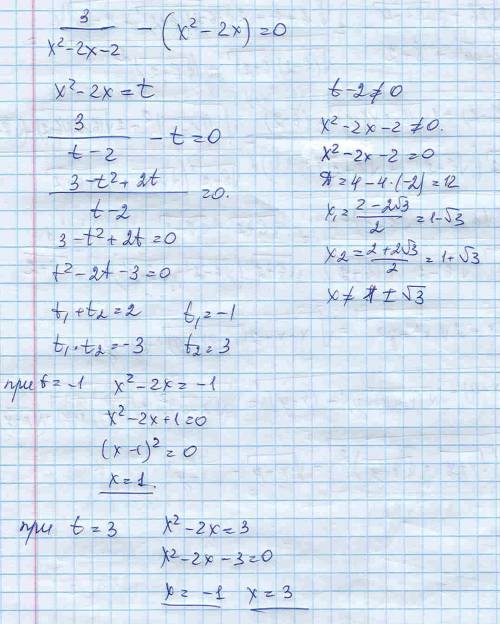 3/(x²-2x-2) - (x²-2x) = 0
x²-2x = t
3/(t-2) - t = 0
(3-t²+2t)/(t-2) = 0.
3-t²+2t = 0
t²-2t-3 = 0
t₁+t₂ = 2 t₁ = -1
t₁·t₂ = -3 t₂ = 3
при t = -1 x²-2x = -1
x²-2x+1 = 0
(x-1)² = 0
x = 1.
при t = 3 x²-2x = 3
x²-2x-3 = 0
x = -1 x = 3
t-2 ≠ 0
x²-2x-2 ≠ 0.
x²-2x-2 = 0
Д = 4-4·(-2) = 12
x₁ = (2-2√3)/2 = 1-√3
x₂ = (2+2√3)/2 = 1+√3
x ≠ 1 ± √3